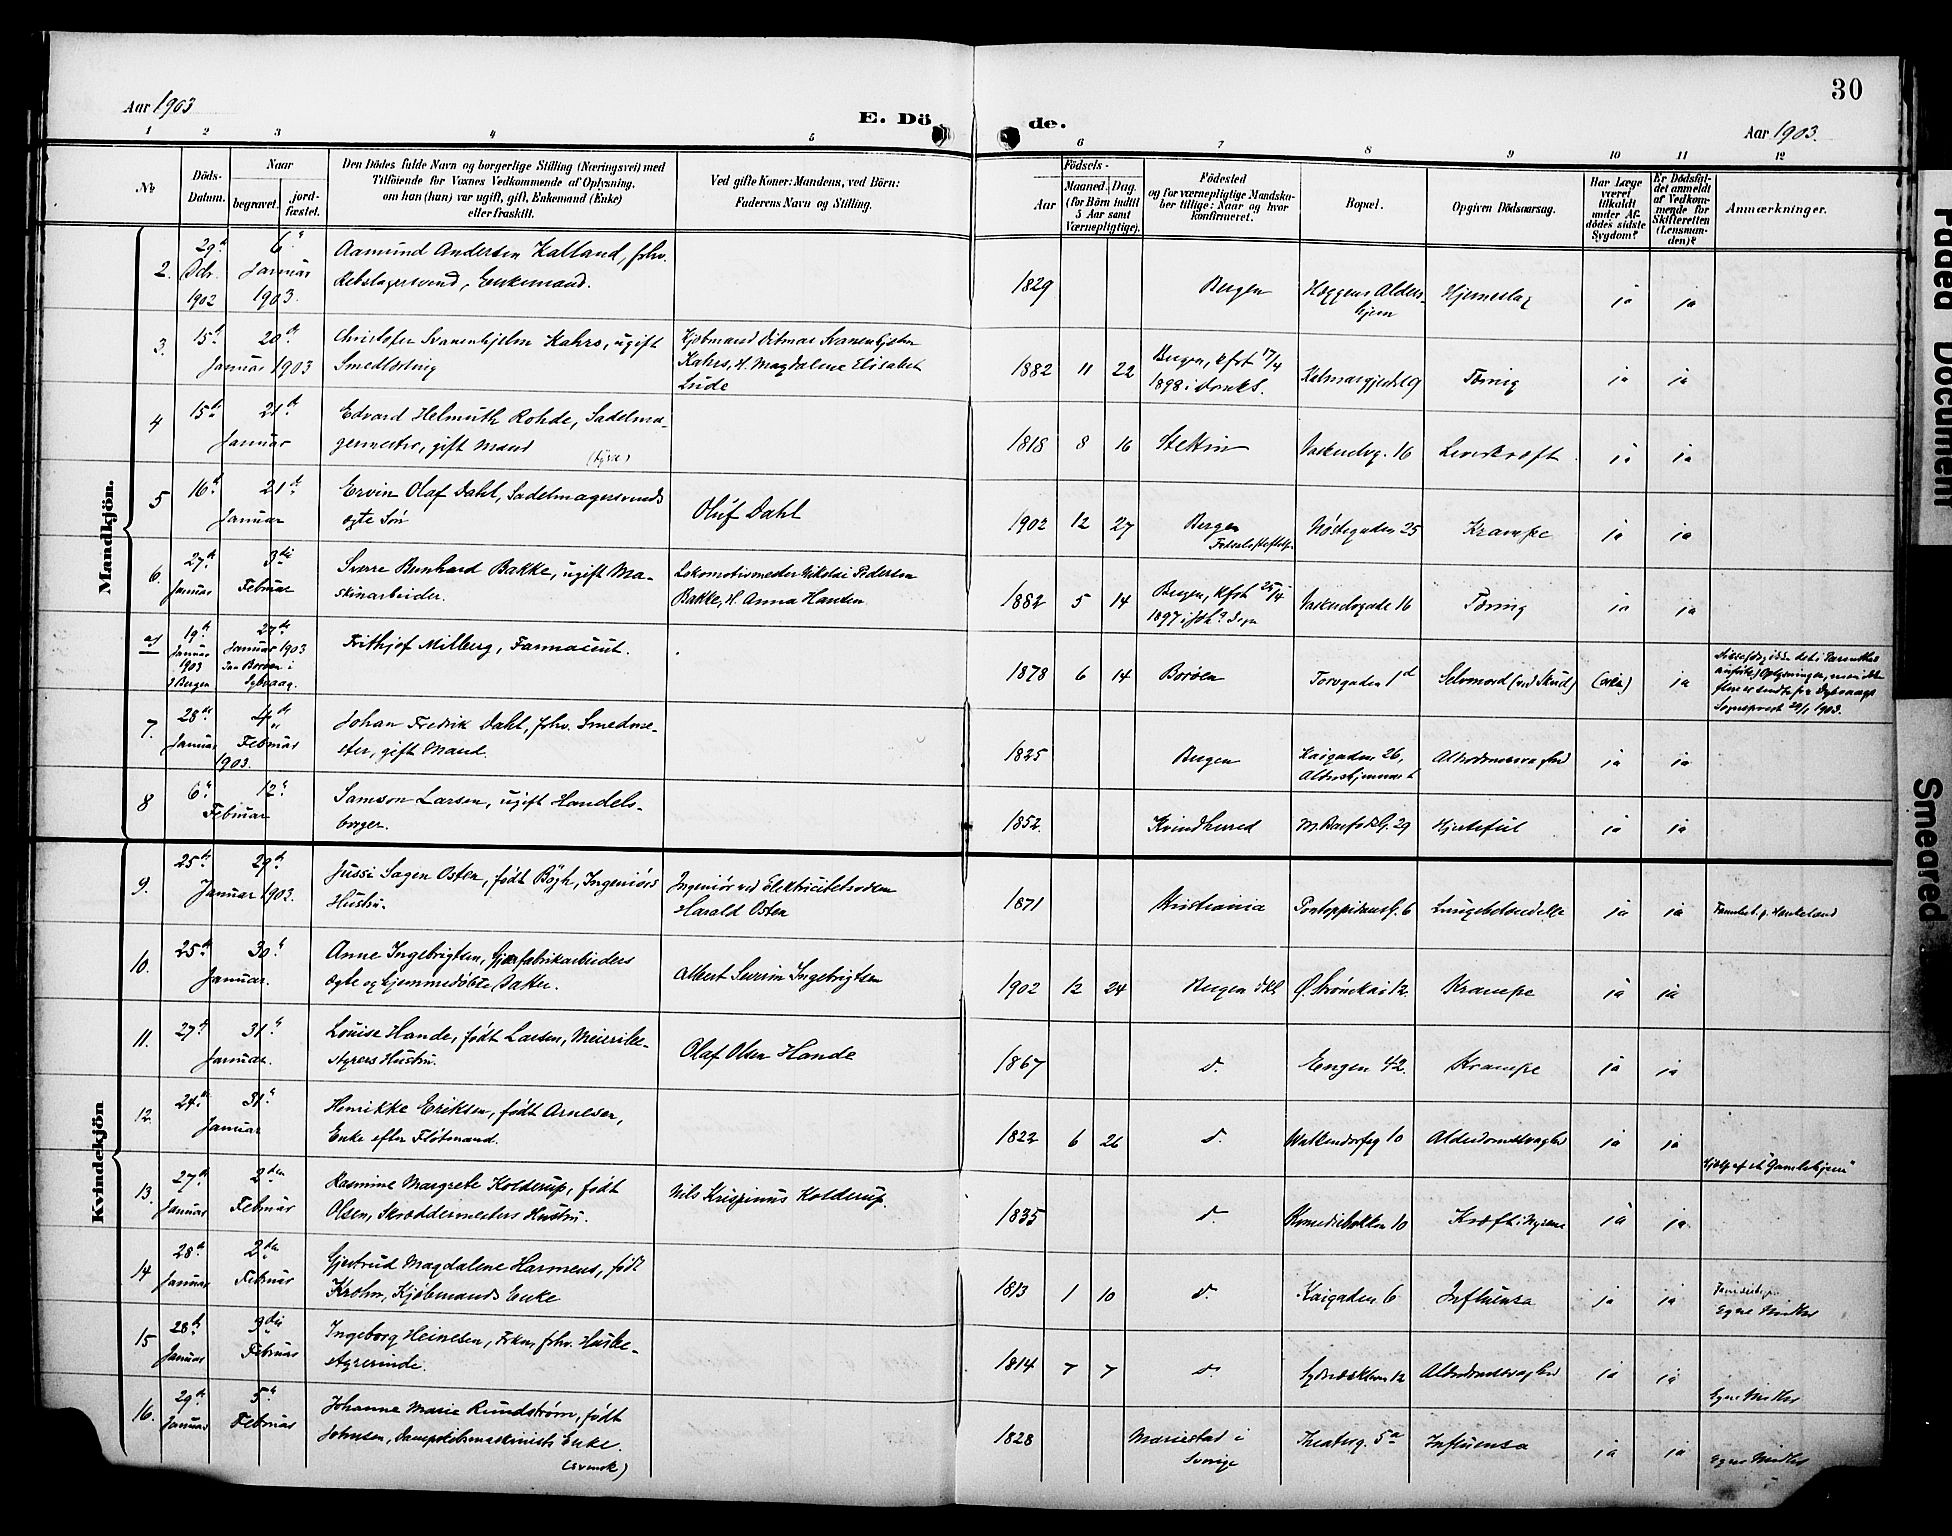 30
Aar 1903
E. Dö de.
Aar 1903.
1 2 3 4 5 6 7 8 9 10 11 12
No
Döds-
Datum.
Naar
begravet.
jord-
fæstet.
Den Dödes fulde Navn og borgerlige Stilling (Næringsvei) med
Tilföiende for Voxnes Vedkommende af Oplysning,
om han (hun) var ugift, gift, Enkemand (Enke)
eller fraskilt.
Ved gifte Koner: Mandens, ved Börn:
Faderens Navn og Stilling.
Födsels-
Aar
Maaned.
Dag.
(for Börn indtil
5 Aar samt
Værnepligtige).
Födested
og for værnepligtige Mandska-
ber tillige: Naar og hvor
konfirmeret.
Bopæl.
Opgiven Dödsaarsag.
Har Læge
været
tilkaldt
under Af-
dödes sidste
Sygdom?
Er Dödsfal-
det anmeldt
af Vedkom-
mende for
Skifteretten
(Lensman-
den)?
Anmærkninger.
Mandkjön.
2.
29de
Dcbr.
1902
6te
Januar
1903.
Aamund Andersen Kalland, fhv.
Rebslagersvend, Enkemand.
1829
Bergen
Hæggens Alders-
hjem
Hjerneslag
ja
ja
3.
15de
20de
Januar 1903
Christofer Svanenhjelm Kahrs, ugift
Smedlærling
Kjøbmand Ditmar Svanenhjelm
Kahrs, H. Magdalene Elisabet
Lude
1882 11 22
Bergen, kfrt 17/4
1898 i Domk.
Kalmargjerdet 9
Tæring
ja
ja
4
15de
21de
Januar
Edvard Helmuth Rohde, Sadelma-
germester, gift Mand
1818 8 16
Stettin
Vaskerelvg. 16
Leverkræft
ja
ja
5
16de
21de
Januar
Ervin Olaf Dahl, Sadelmagersvends
ægte Søn
Oluf Dahl
1902 12 27
Bergen
Fødselsstiftelse
Nøstegaden 25
Krampe
ja
ja
6.
27de
Januar
3die
Februar
Sverre Bernhard Bakke, ugift Ma-
skinarbeider.
Lokomotivmester Nikolai Pedersen
Bakke, H. Anna Hansen
1882 5 14
Bergen, kfrt 25/4
1897 i Joh.
Vaskerelvgade 16
Tæring
ja
ja
a)
19de
Januar
1903
i Bergen
27de
Januar 1903
paa Borøen i
Dybvaag.
Frithjof Milberg, Farmaceut.
1878 6 14
Borøen
Torvgaden 1d
Selvmord (ved Skud)
(nei)
ja
Sognepræst 29/1 1903.
7.
28de
Januar
1903.
4de
Februar
Johan Fredrik Dahl, fhv. Smedme-
ster, gift Mand.
1825
Bergen
Kaigaden 26,
Aldershjemmet
Alderdomssvaghed
ja
ja
8
6te
12te
Februar
Samson Larsen, ugift Handels-
borger.
1852.
Kvindherred
29
Hjertefeil
ja
ja
Kvindekjön
9.
25de
29de
Januar 1903.
Jussi Sagen Osten, født Bøgh, Ingeniørs
Hustru.
Ingeniør ved Elektricitetsvæsen
Harald Osten
1871
Kristiania
Pontoppidansg. 6
Lungebetændelse
ja
ja
10.
25de
30te
Januar.
Anne Ingebrigtsen, Gjærfabrikarbeiders
ægte og hjemmedøbte Datter.
Albert Severin Ingebrigtsen
1902 12 24
Bergen
Ø. Strømkai 12.
Krampe
ja
ja
11.
27de
31te
Januar.
Louise Hande, født Larsen, Meieribe-
styrers Hustru.
Olaf Olsen Hande
1867
d.
Engen 42.
Krampe
ja
ja
12.
24de
31te
Januar
Henrikke Eriksen, født Arnesen,
Enke efter Fløtmand.
1822 6 26
d.
Walkendorfsg 10
Alderdomssvaghed
ja
ja
Hjælp af et "Gamlehjem"
13.
27de
Januar
2den
Februar
Rasmine Margrete Kolderup, født
Olsen, Skræddermesters Hustru.
Nils Krispinus Kolderup.
1835
d.
Komediebakken 10
Kræft i Nyrene
ja
ja.
14
28de
Januar
2den
Februar
Gjertrud Magdalene Harmens, født
Krohn, Kjøbmands Enke
1813 1 10
d.
Kaigaden 6
Influensa
ja
ja
Egne Midler
15
28de
Januar
9die
Februar
Ingeborg Heinesen, Frkn, fhv. Husbe-
styrerinde.
1814 7 7
d.
12
Alderdomssvaghed
ja
ja
Egne Midler
16.
29de
Januar
5te
Februar
Johanne Marie Rundstrøm, født
Johnsen, Dampskibsmaskinists Enke.
(svensk)
1828
Mariestad i
Sverige
Theaterg. 5a
Influensa
ja
ja
Egne Midler
Faded Document
Smeared